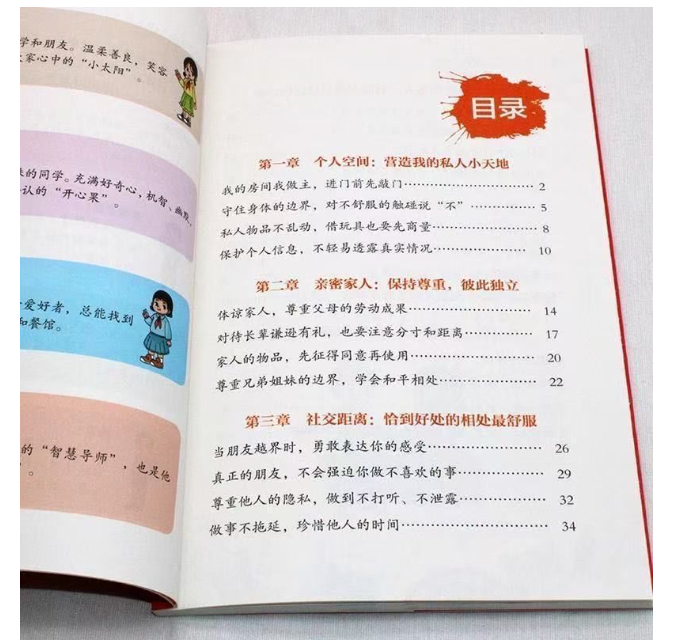 学和朋友。温柔善良，笑容
家心中的“小太阳”。
的同学。充满好奇心，机智、幽默，
认的“开心果”。
爱好者，总能找到
和餐馆。
的“智慧导师”，也是他
”。
目录
第一章 个人空间：营造我的私人小天地
我的房间我做主，进门前先敲门……………………2
守住身体的边界，对不舒服的触碰说“不”…………5
私人物品不乱动，借玩具也要先商量………………8
保护个人信息，不轻易透露真实情况………………10
第二章 亲密家人：保持尊重，彼此独立
体谅家人，尊重父母的劳动成果……………………14
对待长辈谦逊有礼，也要注意分寸和距离…………17
家人的物品，先征得同意再使用……………………20
尊重兄弟姐妹的边界，学会和平相处………………22
第三章 社交距离：恰到好处的相处最舒服
当朋友越界时，勇敢表达你的感受…………………26
真正的朋友，不会强迫你做不喜欢的事……………29
尊重他人的隐私，做到不打听、不泄露……………32
做事不拖延，珍惜他人的时间………………………34